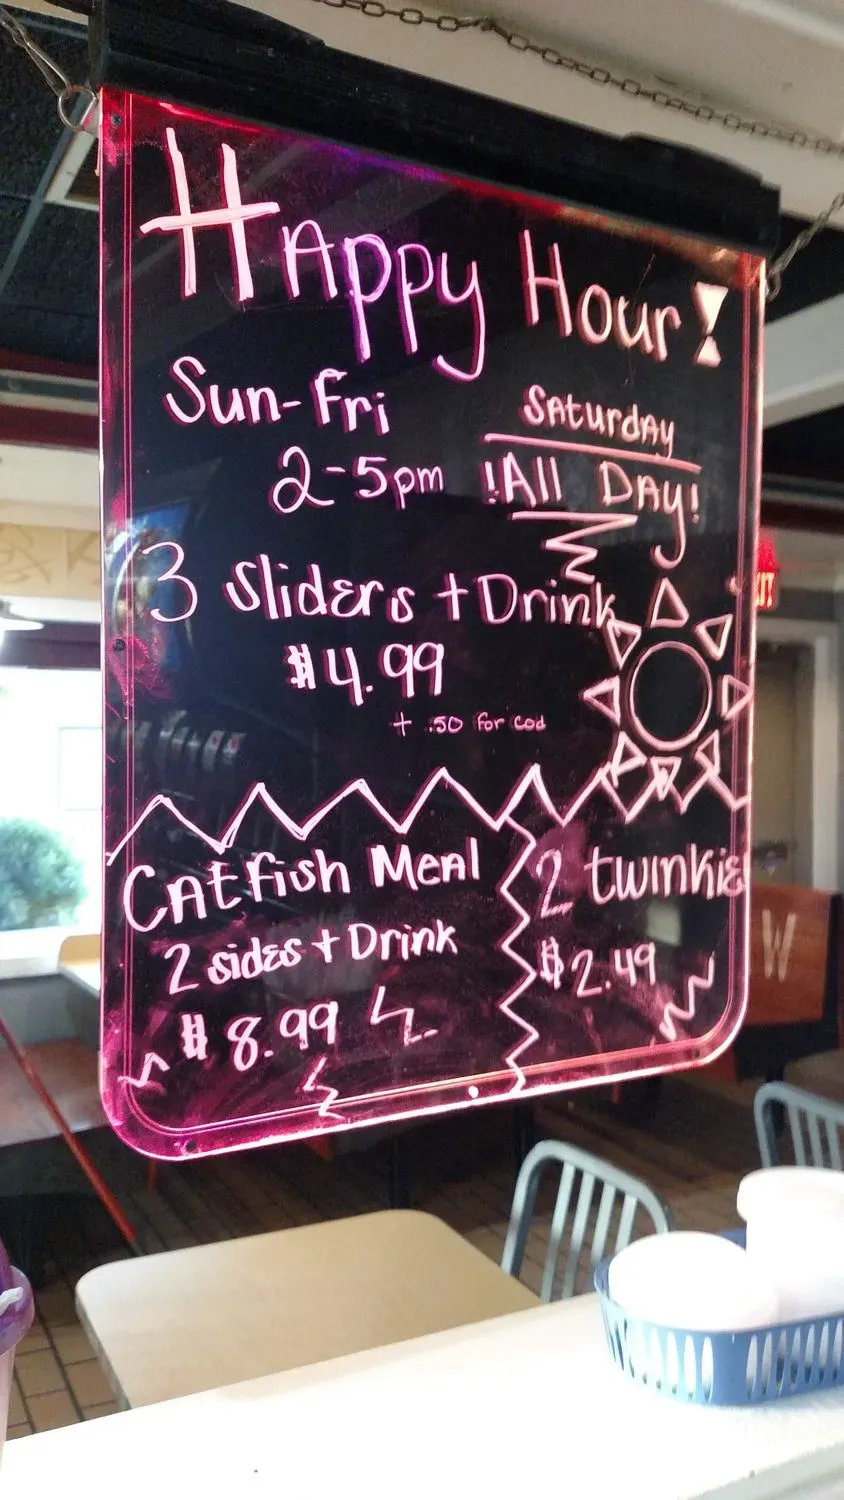 HAppy Hour!
Sun-Fri
2-5pm
SAturdAy
!All DAy!
3 Sliders + Drink
$4.99
+ .50 For Cod
CAtfish MeAl
2 sides + Drink
$8.99
2 twinkies
$2.49
W